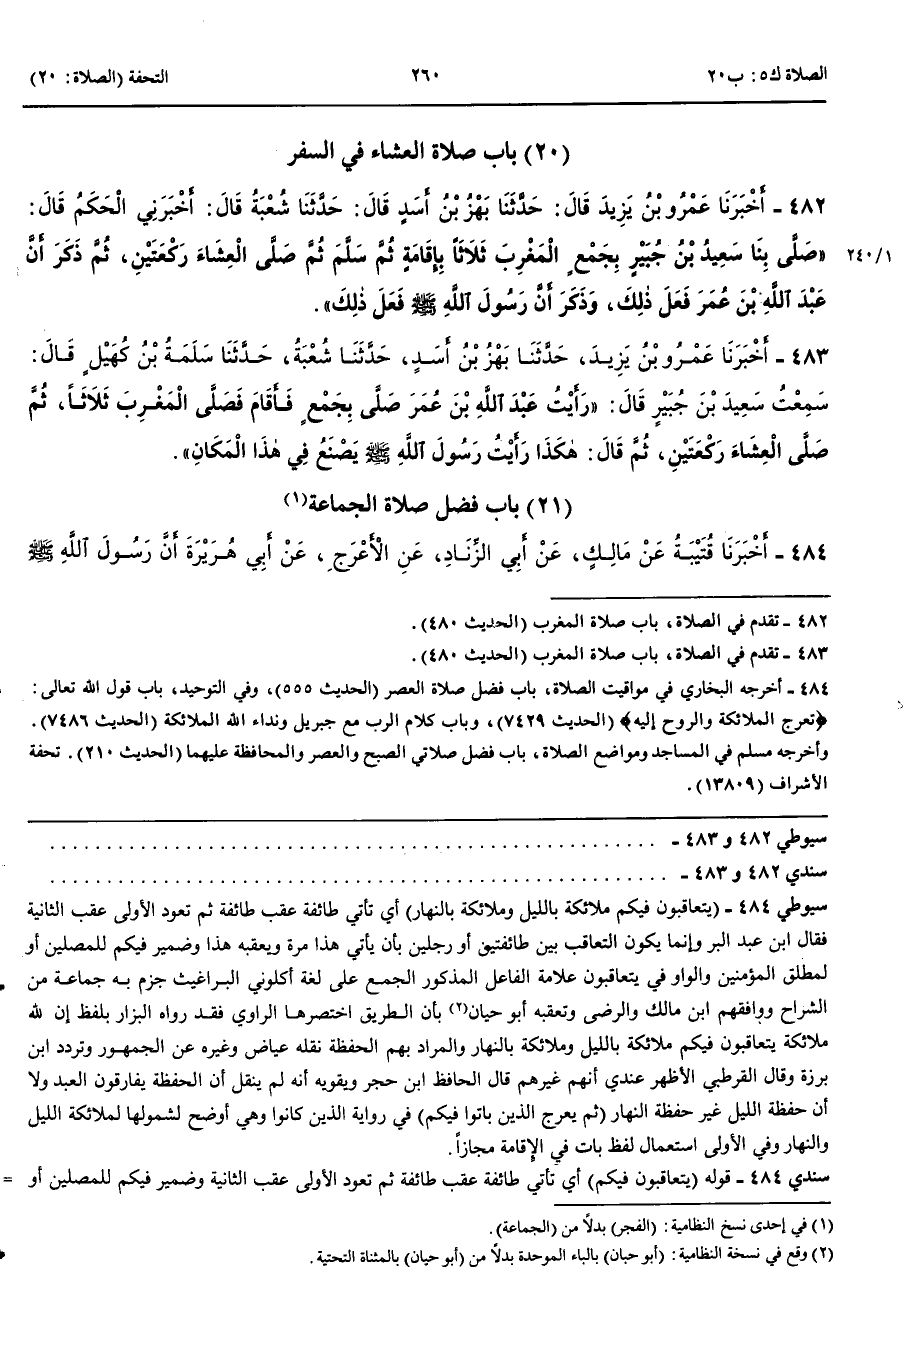 الصلاة ك٥: ب٢٠
٢٦٠
التحفة (الصلاة: ٢٠)
(٢٠) باب صلاة العشاء في السفر
٤٨٢ - أَخْبَرَنَا عَمْرُو بْنُ يَزِيدَ قَالَ: حَدَّثَنَا بَهْزُ بْنُ أَسَدٍ قَالَ: حَدَّثَنَا شُعْبَةُ قَالَ: أَخْبَرَنِي الْحَكَمُ قَالَ:
٢٤٠/١
«صَلَّى بِنَا سَعِيدُ بْنُ جُبَيْرٍ بِجَمْعٍ الْمَغْرِبَ ثَلَاثاً بِإِقَامَةٍ ثُمَّ سَلَّمَ ثُمَّ صَلَّى الْعِشَاءَ رَكْعَتَيْنِ، ثُمَّ ذَكَرَ أَنَّ
عَبْدَ اللَّهِ بْنَ عُمَرَ فَعَلَ ذٰلِكَ، وَذَكَرَ أَنَّ رَسُولَ اللَّهِ ﷺ فَعَلَ ذٰلِكَ».
٤٨٣ - أَخْبَرَنَا عَمْرُو بْنُ يَزِيدَ، حَدَّثَنَا بَهْزُ بْنُ أَسَدٍ، حَدَّثَنَا شُعْبَةُ، حَدَّثَنَا سَلَمَةُ بْنُ كُهَيْلٍ قَالَ:
سَمِعْتُ سَعِيدَ بْنَ جُبَيْرٍ قَالَ: «رَأَيْتُ عَبْدَ اللَّهِ بْنَ عُمَرَ صَلَّى بِجَمْعٍ فَأَقَامَ فَصَلَّى الْمَغْرِبَ ثَلَاثَاً، ثُمَّ
صَلَّى الْعِشَاءَ رَكْعَتَيْنِ، ثُمَّ قَالَ: هٰكَذَا رَأَيْتُ رَسُولَ اللَّهِ ﷺ يَصْنَعُ فِي هٰذَا الْمَكَانِ».
(٢١) باب فضل صلاة الجماعة(١)
٤٨٤ - أَخْبَرَنَا قُتَيْبَةُ عَنْ مَالِكٍ، عَنْ أَبِي الزِّنَادِ، عَنِ الْأَعْرَجِ، عَنْ أَبِي هُرَيْرَةَ أَنَّ رَسُولَ اللَّهِ ﷺ
٤٨٢ - تقدم في الصلاة، باب صلاة المغرب (الحديث ٤٨٠).
٤٨٣ - تقدم في الصلاة، باب صلاة المغرب (الحديث ٤٨٠).
٤٨٤ - أخرجه البخاري في مواقيت الصلاة، باب فضل صلاة العصر (الحديث ٥٥٥)، وفي التوحيد، باب قول الله تعالى:
﴿تعرج الملائكة والروح إليه﴾ (الحديث ٧٤٢٩)، وباب كلام الرب مع جبريل ونداء الله الملائكة (الحديث ٧٤٨٦).
وأخرجه مسلم في المساجد ومواضع الصلاة، باب فضل صلاتي الصبح والعصر والمحافظة عليهما (الحديث ٢١٠). تحفة
الأشراف (١٣٨٠٩).
سيوطي ٤٨٢ و ٤٨٣ - . . . . . . . . . . . . . . . . . . . . . . . . . . . . . . . . . . . . . . . . . .
سندي ٤٨٢ و ٤٨٣ - . . . . . . . . . . . . . . . . . . . . . . . . . . . . . . . . . . . . . . . . . .
سيوطي ٤٨٤ - (يتعاقبون فيكم ملائكة بالليل وملائكة بالنهار) أي تأتي طائفة عقب طائفة ثم تعود الأولى عقب الثانية
فقال ابن عبد البر وإنما يكون التعاقب بين طائفتيق أو رجلين بأن يأتي هذا مرة ويعقبه هذا وضمير فيكم للمصلين أو
لمطلق المؤمنين والواو في يتعاقبون علامة الفاعل المذكور الجمع على لغة أكلوني البراغيث جزم به جماعة من
الشراح ووافقهم ابن مالك والرضى وتعقبه أبو حيان(٢) بأن الطريق اختصرها الراوي فقد رواه البزار بلفظ إن لله
ملائكة يتعاقبون فيكم ملائكة بالليل وملائكة بالنهار والمراد بهم الحفظة نقله عياض وغيره عن الجمهور وتردد ابن
برزة وقال القرطبي الأظهر عندي أنهم غيرهم قال الحافظ ابن حجر ويقويه أنه لم ينقل أن الحفظة يفارقون العبد ولا
أن حفظة الليل غير حفظة النهار (ثم يعرج الذين باتوا فيكم) في رواية الذين كانوا وهي أوضح لشمولها لملائكة الليل
والنهار وفي الأولى استعمال لفظ بات في الإقامة مجازاً.
سندي ٤٨٤ - قوله (يتعاقبون فيكم) أي تأتي طائفة عقب طائفة ثم تعود الأولى عقب الثانية وضمير فيكم للمصلين أو =
(١) في إحدى نسخ النظامية: (الفجر) بدلاً من (الجماعة).
(٢) وقع في نسخة النظامية: (أبو حبان) بالباء الموحدة بدلاً من (أبو حيان) بالمثناة التحتية.